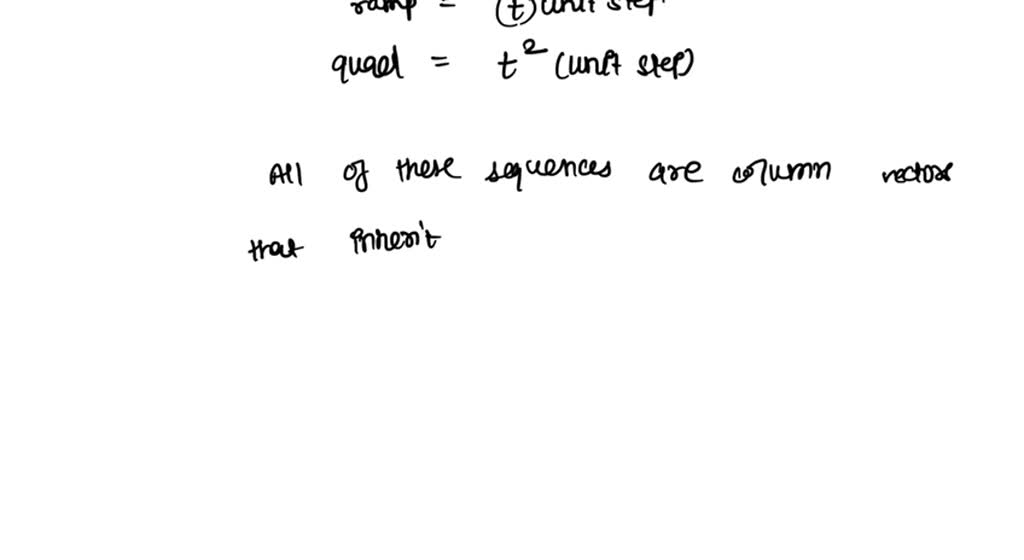 ramp = (t) unit step
quad = t² (unit step)
All of these sequences are column vectors
that inherit